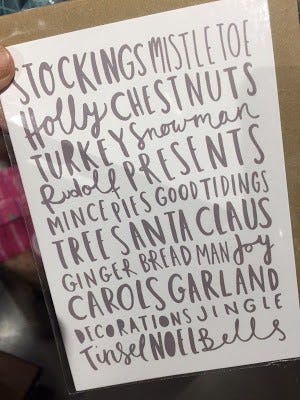 STOCKINGS MISTLETOE
Holly CHESTNUTS
TURKEY Snowman
Rudolf PRESENTS
MINCE PIES GOOD TIDINGS
TREE SANTA CLAUS
GINGER BREAD MAN Joy
CAROLS GARLAND
DECORATIONS JINGLE
Tinsel NOEL Bells